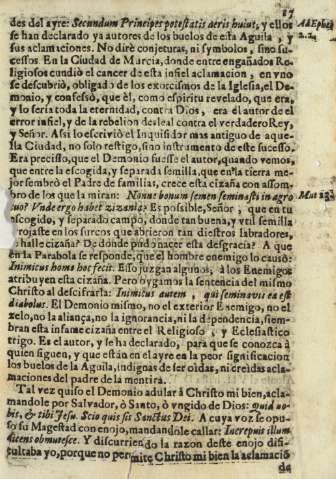 87
des del ayre: Secundum Principes potestatis aeris huius, y ellos
Ad Ephes.
se han declarado ya autores de los buelos de esta Aguila, y
2. 2.
sus aclamaciones. No dirè conjeturas, ni symbolos, sino su-
cessos. En la Ciudad de Murcia, donde entre engañados Re-
ligiosos cundiò el cancer de esta infiel aclamacion, en vno
se descubriò, obligado de los exorcismos de la Iglesia, el De-
monio, y confesò, que èl, como espiritu revelado, que era,
y lo seria toda la eternidad, contra Dios, era el autor de el
error infiel, y de la rebelion desleal contra el verdadero Rey,
y Señor. Assi lo escriviò el Inquisidor mas antiguo de aque-
lla Ciudad, no solo testigo, sino instrumento de este sucesso.
Era preciso, que el Demonio fuesse el autor, quando vemos,
que entre la escogida, y separada semilla, que en la tierra me-
jor sembrò el Padre de familias, crece esta cizaña con assom-
bro de los que la miran: Nonne bonum semen seminasti in agro
Mat 13.
tuo? Vnde ergo habet zizania? Es possible, Señor, que en tu
escogido, y separado campo, donde tan buena, y vtil semilla
arrojaste en los surcos que abrieron tan diestros labradores,
se halle cizaña? De donde pudo nacer esta desgracia? A que
en la Parabola se responde, que el hombre enemigo lo causò:
Inimicus homo hoc fecit. Esso juzgan algunos, à los Enemigos
atribuyen esta cizaña. Pero oygamos la sentencia del mismo
Christo al descifrarla: Inimicus autem, qui seminavit ea est
diabolus. El Demonio mismo, no el exterior Enemigo, no el
zelo, no la aliança, no la ignorancia, ni la dependencia, siem-
bran esta infame cizaña entre el Religioso, y Eclesiastico
trigo. Es el autor, y se ha declarado, para que se conozca à
quien siguen, y que están en el ayre en la peor significacion
los buelos de la Aguila, indignas de ser oidas, ni creidas acla-
maciones del padre de la mentira.
Tal vez quiso el Demonio adular à Christo mi bien, acla-
mandole por Salvador, ò Santo, ò vngido de Dios: Quid no-
bis, & tibi Jesu. Scio quis sis Sanctus Dei. A cuya voz se opu-
so su Magestad con enojo, mandandole callar: Increpuit illum
dicens obmutesce. Y discurriendo la razon deste enojo difi-
cultaba yo, porque no permite Christo mi bien la aclamaciō
de